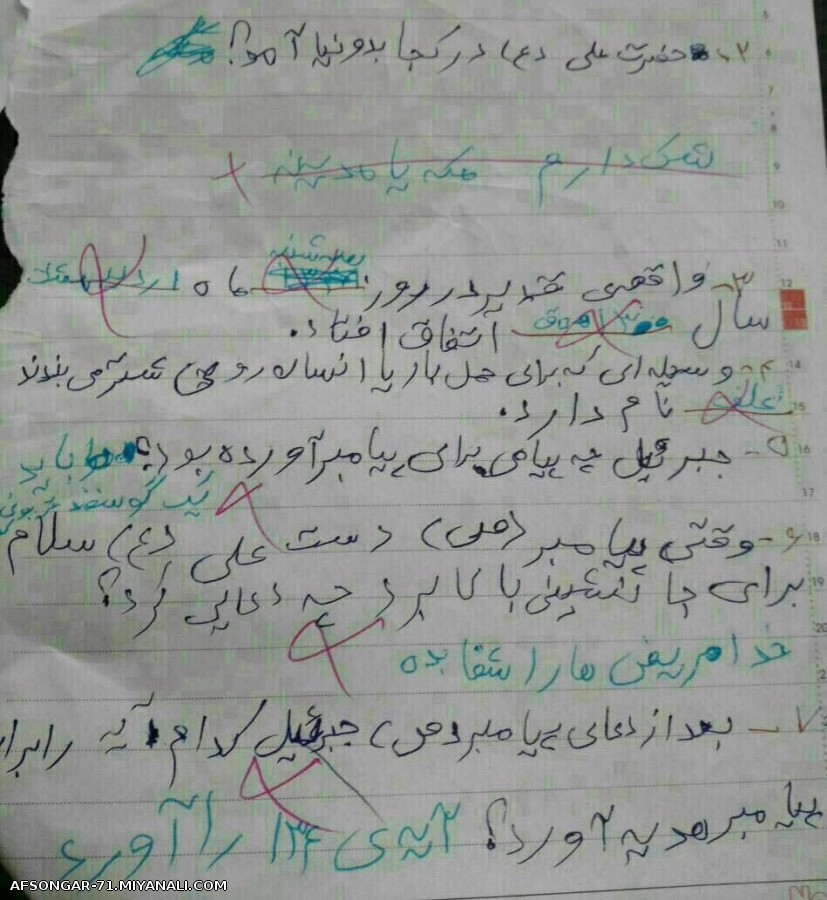 ۲- حضرت علی (ع) در کجا بدونیا آمد؟
شک دارم مکه یا مدینه
۳- واقعی غدیر در روز سه شنبه ماه اردیبهشت
سال اتفاق افتاد.
۴- وسیله ای که برای حمل بار یا انسان روی شتر می بندند
علف نام دارد.
۵- جبرئیل چه پیامی برای پیامبر آورده بود؟ ما باید
یک گوسفند
۶- وقتی پیامبر (ص) دست علی (ع) سلام
برای جانشینی بالا برد چه دعایی کرد؟
خدا مریض ما را شفا بده
۷- بعد از دعای پیامبر (ص) جبرئیل کدام آیه را برای
پیامبر هدیه آورد؟ آیه ی ۱۳۴ را آورد
AFSONGAR-71.MIYANALI.COM